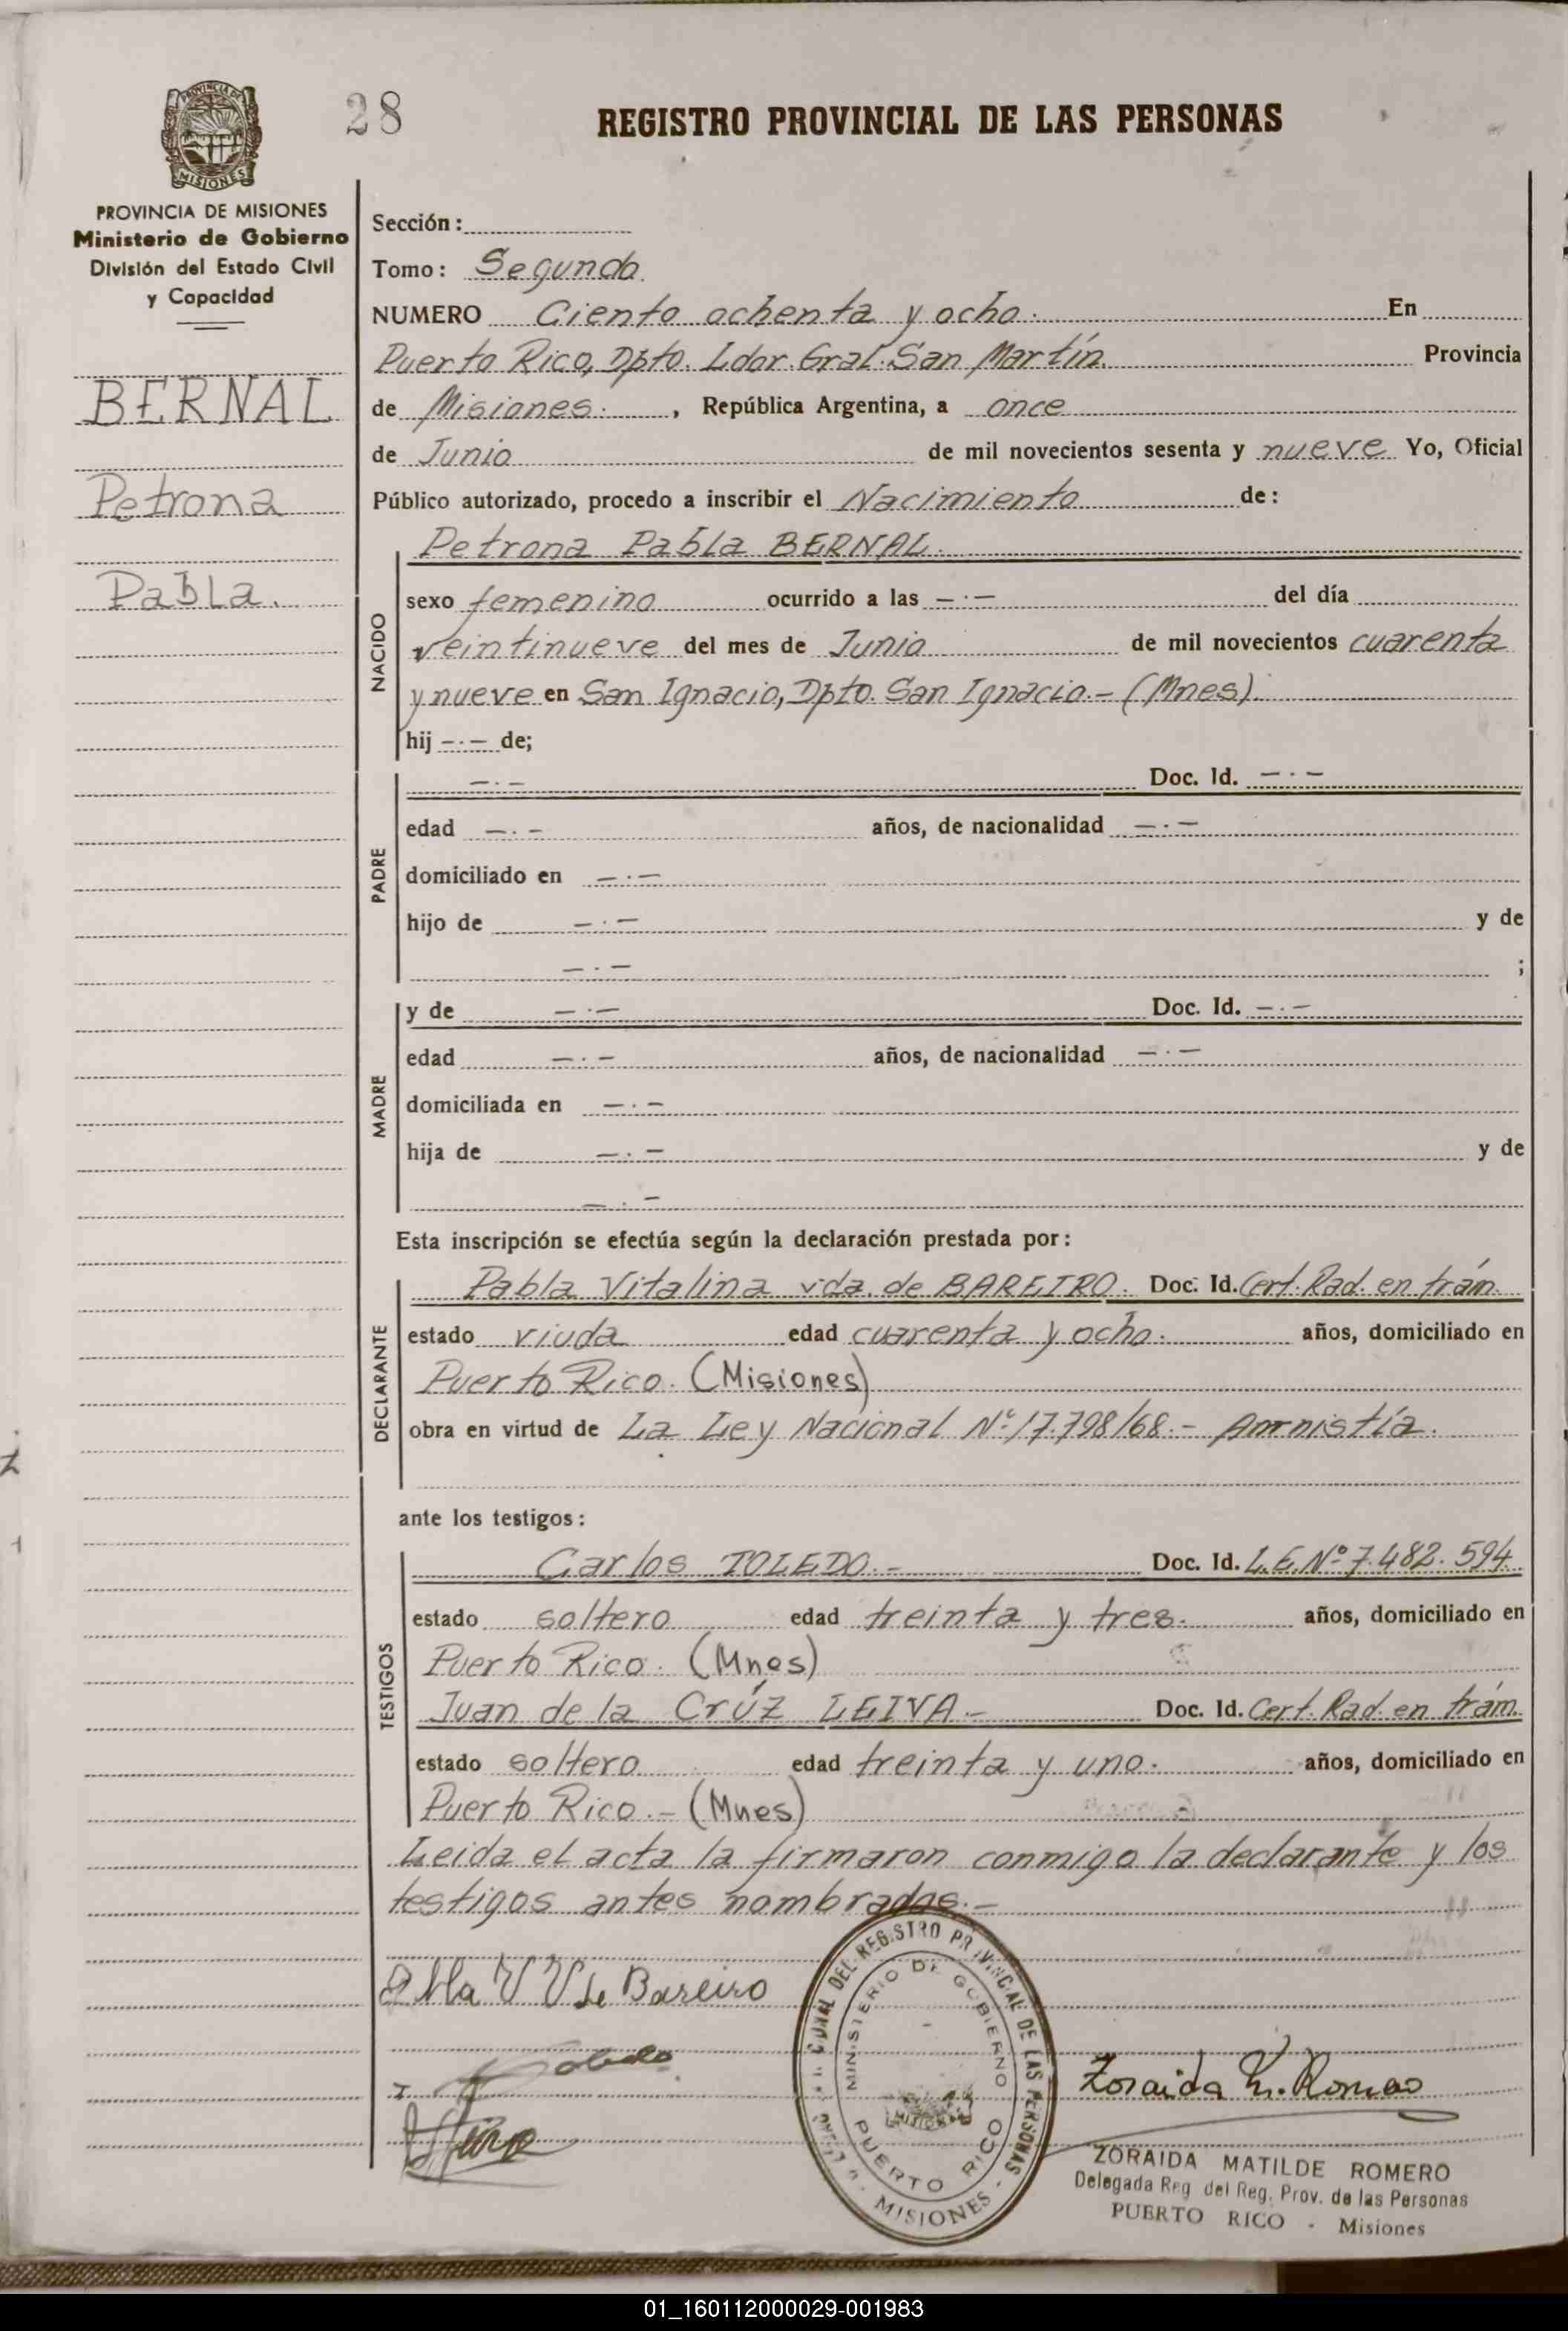 28
REGISTRO PROVINCIAL DE LAS PERSONAS
PROVINCIA DE
MISIONES
PROVINCIA DE MISIONES
Ministerio de Gobierno
División del Estado Civil
y Capacidad
BERNAL
Petrona
Pabla.
Sección:
Tomo: Segundo
NUMERO Ciento ochenta y ocho. En
Puerto Rico, Dpto. Ldor. Gral. San Martín. Provincia
de Misiones. , República Argentina, a once
de Junio de mil novecientos sesenta y nueve Yo, Oficial
Público autorizado, procedo a inscribir el Nacimiento de:
NACIDO
Petrona Pabla BERNAL.
sexo femenino ocurrido a las -.- del día
veintinueve del mes de Junio de mil novecientos cuarenta
y nueve en San Ignacio, Dpto. San Ignacio.- (Mnes).
hij -.- de;
PADRE
-.- Doc. Id. -.-
edad -.- años, de nacionalidad -.-
domiciliado en -.-
hijo de -.- y de
-.- ;
MADRE
y de -.- Doc. Id. -.-
edad -.- años, de nacionalidad -.-
domiciliada en -.-
hija de -.- y de
-.-
Esta inscripción se efectúa según la declaración prestada por:
DECLARANTE
Pabla Vitalina vda. de BAREIRO. Doc. Id. Cert. Rad. en trám.
estado viuda edad cuarenta y ocho. años, domiciliado en
Puerto Rico. (Misiones)
obra en virtud de La Ley Nacional Nº 17.798/68.- Amnistía.
ante los testigos:
TESTIGOS
Carlos TOLEDO.- Doc. Id. L.E. Nº 7.482.594
estado soltero edad treinta y tres. años, domiciliado en
Puerto Rico. (Mnes)
Juan de la Crúz LEIVA.- Doc. Id. Cert. Rad. en trám.
estado soltero edad treinta y uno. años, domiciliado en
Puerto Rico.- (Mnes)
Leida el acta la firmaron conmigo la declarante y los
testigos antes nombrados.-
V V de Bareiro
DEL REGISTRO PROVINCIAL DE LAS PERSONAS
MINISTERIO DE GOBIERNO
PUERTO RICO
MISIONES
Zoraida M. Romero
ZORAIDA MATILDE ROMERO
Delegada Reg del Reg. Prov. de las Personas
PUERTO RICO - Misiones
01_160112000029-001983